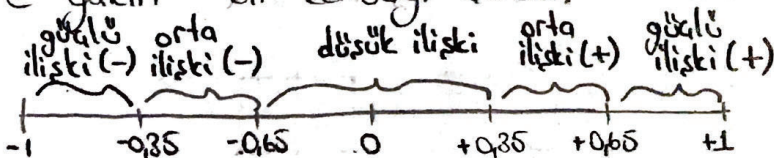 güçlü ilişki (-)
orta ilişki (-)
düşük ilişki
orta ilişki (+)
güçlü ilişki (+)
-1 -0,35 -0,65 0 +0,35 +0,65 +1